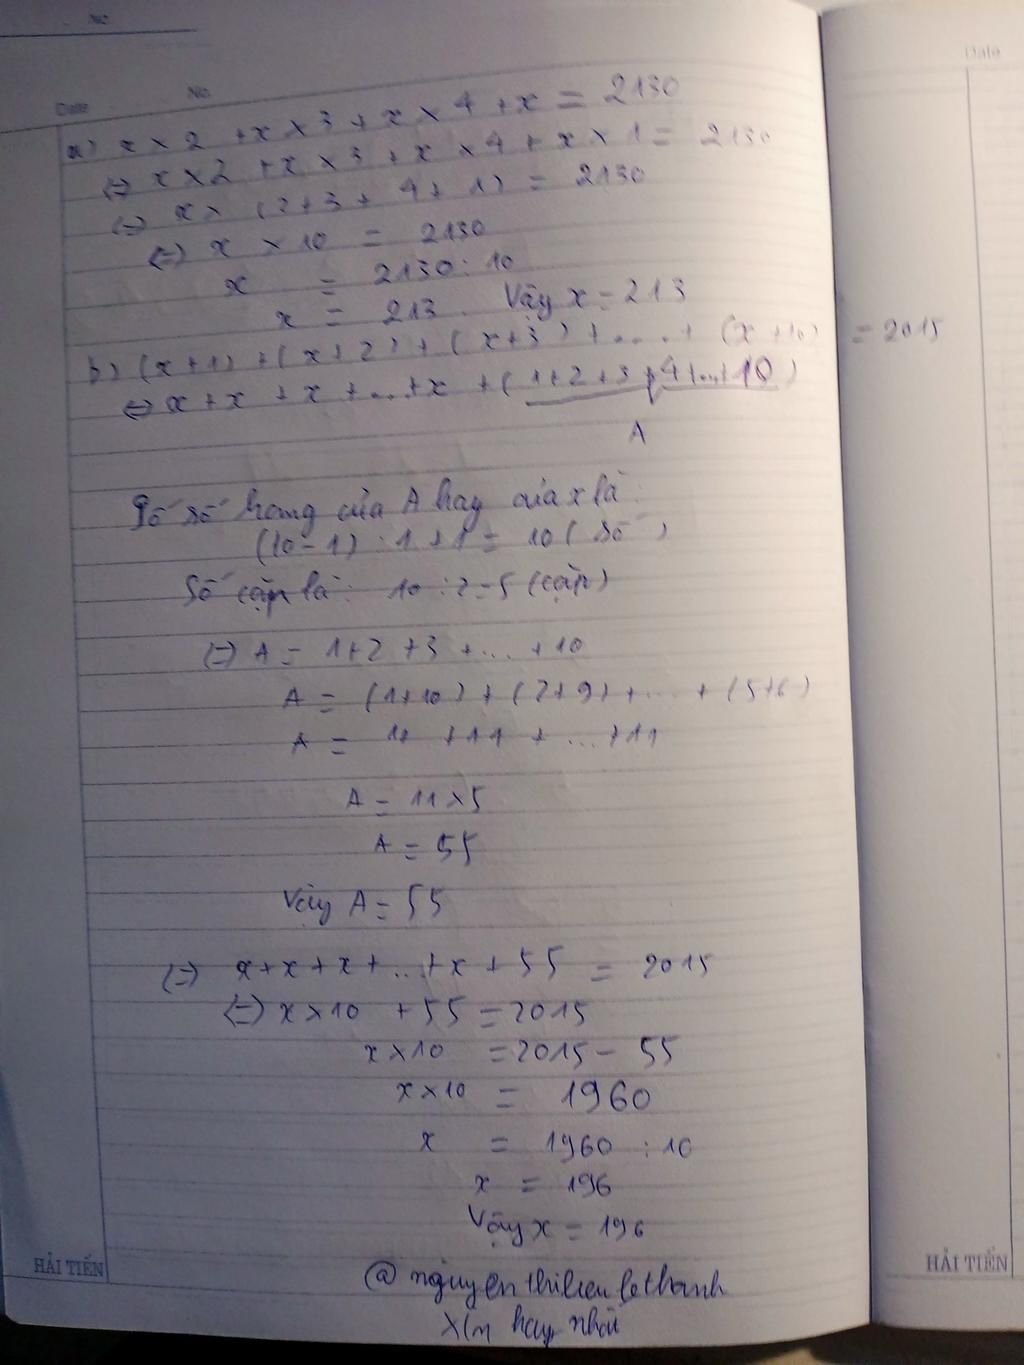 No
Date No
Date
a) x × 2 + x × 3 + x × 4 + x = 2130
(=) x × 2 + x × 3 + x × 4 + x × 1 = 2130
(=) x × (2+3+4+1) = 2130
(=) x × 10 = 2130
x = 2130 : 10
x = 213. Vậy x = 213
b) (x+1) + (x+2) + (x+3) + .... + (x+10) = 2015
(=) x + x + x + ... + x + (1+2+3+4+...+10)
A
số hạng của A hay của x là:
(10-1) : 1 + 1 = 10 (số)
Số cặp là: 10 : 2 = 5 (cặp)
(=) A = 1+2+3+...+10
A = (1+10) + (2+9) + ... + (5+6)
A = 11 + 11 + ... + 11
A = 11 × 5
A = 55
Vậy A = 55
(=) x+x+x+...+x + 55 = 2015
(=) x × 10 + 55 = 2015
x × 10 = 2015 - 55
x × 10 = 1960
x = 1960 : 10
x = 196
Vậy x = 196
HẢI TIẾN HẢI TIẾN
hay nhất